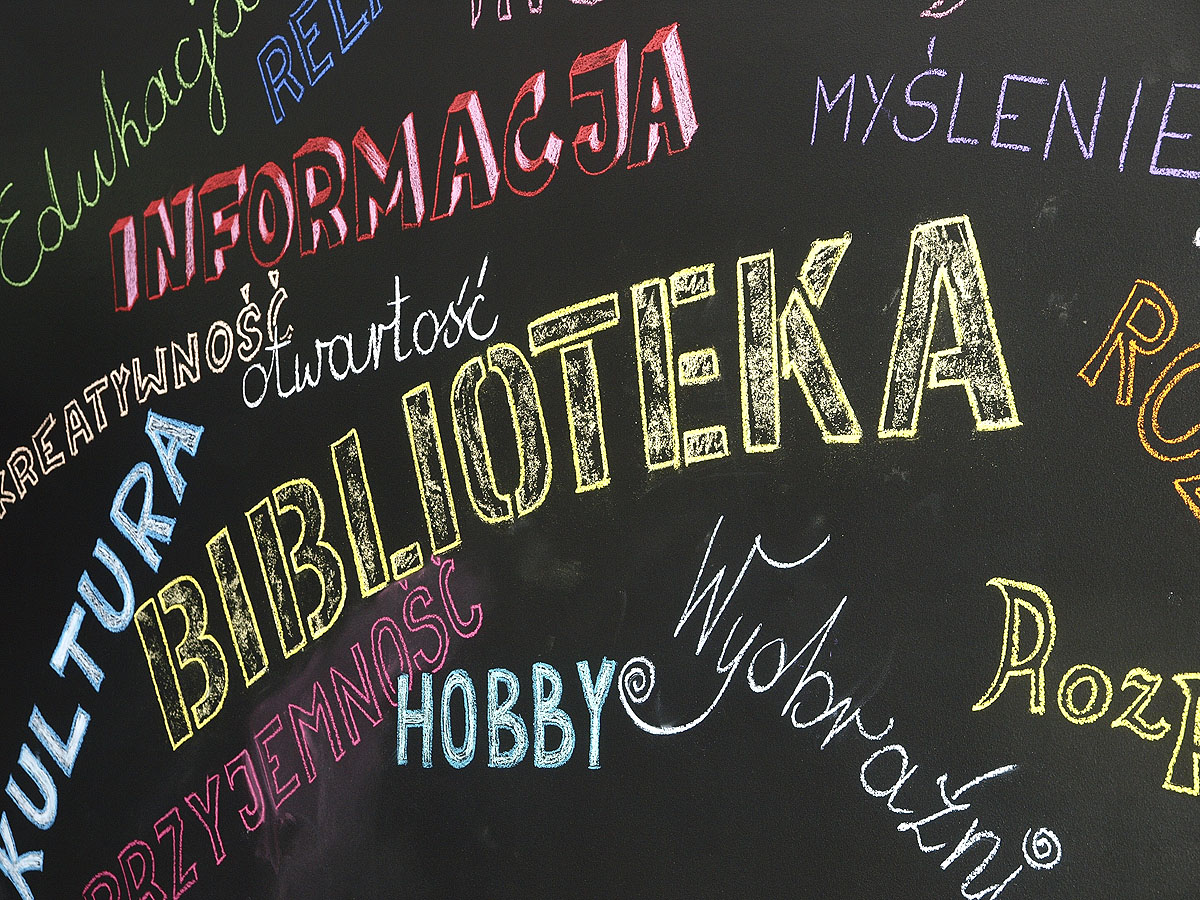 Edukacja
REL
INFORMACJA
MYŚLENIE
KREATYWNOŚĆ
otwartość
BIBLIOTEKA
KULTURA
PRZYJEMNOŚĆ
HOBBY
Wyobraźni